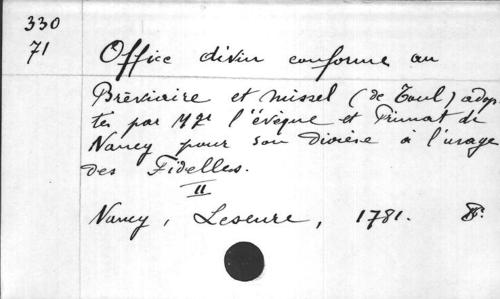 330
71
Office divin conforme au
Brëviaire et missel (de Toul) adop
tés par Mgr l'évêque et Primat de
Nancy pour son diocèse à l'usage
des Fidelles.
II
Nancy, Leseure, 1781.